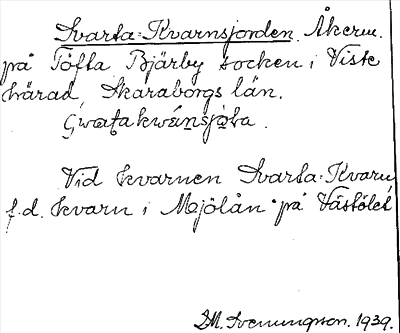 Svarta-Kvarnsjorden. Åkerm.
på Töfta Bjärby socken i Viste
härad, Skaraborgs län.
Vid kvarnen Svarta-Kvarn
f.d. kvarn i Mjölån på
M. Svenungson. 1939.